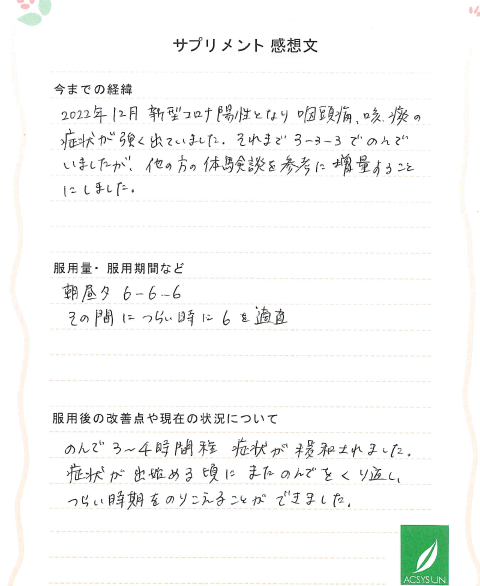 サプリメント 感想文
今までの経緯
2022年12月 新型コロナ陽性となり 咽頭痛、咳、痰の
症状が強く出ていました。それまで 3-3-3 でのんで
いましたが、他の方の体験談を参考に増量すること
にしました。
服用量・服用期間など
朝昼夕 6-6-6
その間に つらい時に 6 を適宜
服用後の改善点や現在の状況について
のんで 3〜4時間程 症状が緩和されました。
症状が出始める頃に またのんでをくり返し、
つらい時期をのりこえることができました。
ACSYSUN